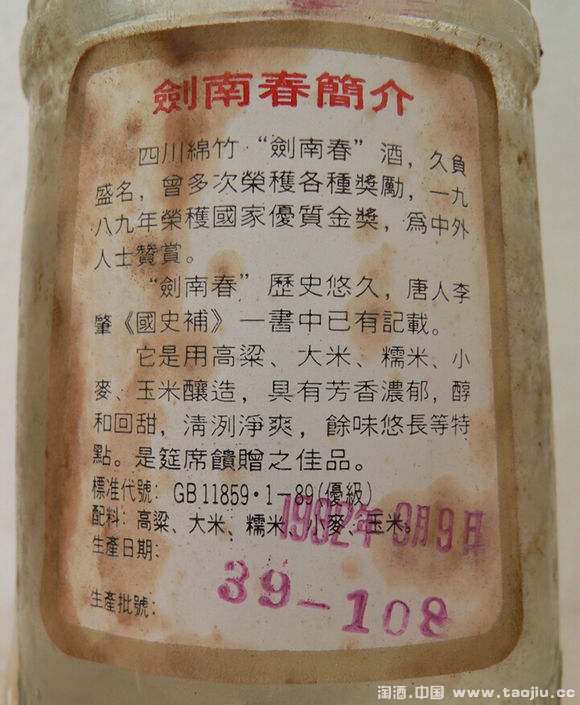 劍南春簡介
四川綿竹“劍南春”酒，久負
盛名，曾多次榮獲各種獎勵，一九
八九年榮獲國家優質金獎，爲中外
人士贊賞。
“劍南春”歷史悠久，唐人李
肇《國史補》一書中已有記載。
它是用高粱、大米、糯米、小
麥、玉米釀造，具有芳香濃郁，醇
和回甜，清洌淨爽，餘味悠長等特
點。是筵席饋贈之佳品。
標准代號：GB11859·1－89(優級)
配料：高粱、大米、糯米、小麥、玉米。
生產日期：1992年9月9日
39-108
生產批號：
淘酒.中国 www.taojiu.cc